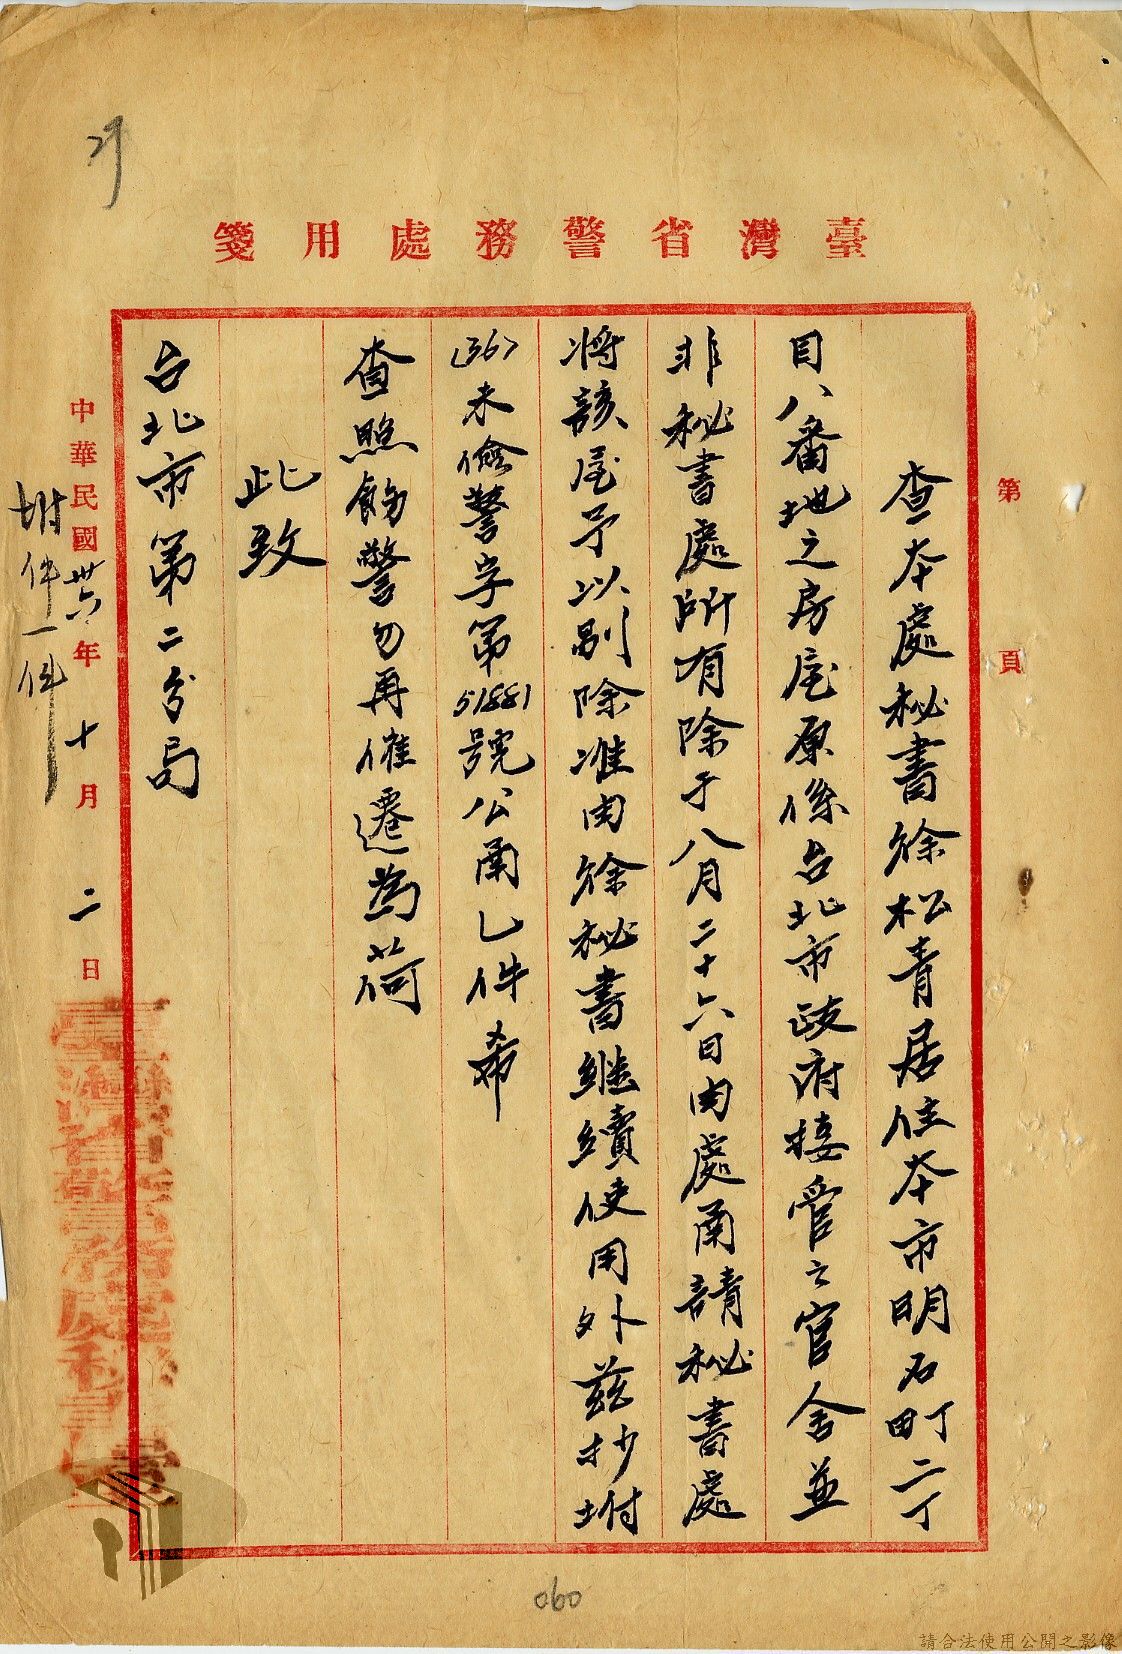 臺灣省警務處用箋
第 頁
查本處秘書徐松青居住本市明石町二丁
目八番地之房屋原係台北市政府接管之官舍並
非秘書處所有除于八月二十六日由處函請秘書處
將該屋予以剔除准由徐秘書継續使用外茲抄坿
(36)未儉警字第51881號公函乙件希
查照飭警勿再催遷為荷
此致
台北市第二分局
中華民國卅六年十月二日
坿件一件
臺灣省警務處秘書室
060
請合法使用公開之影像